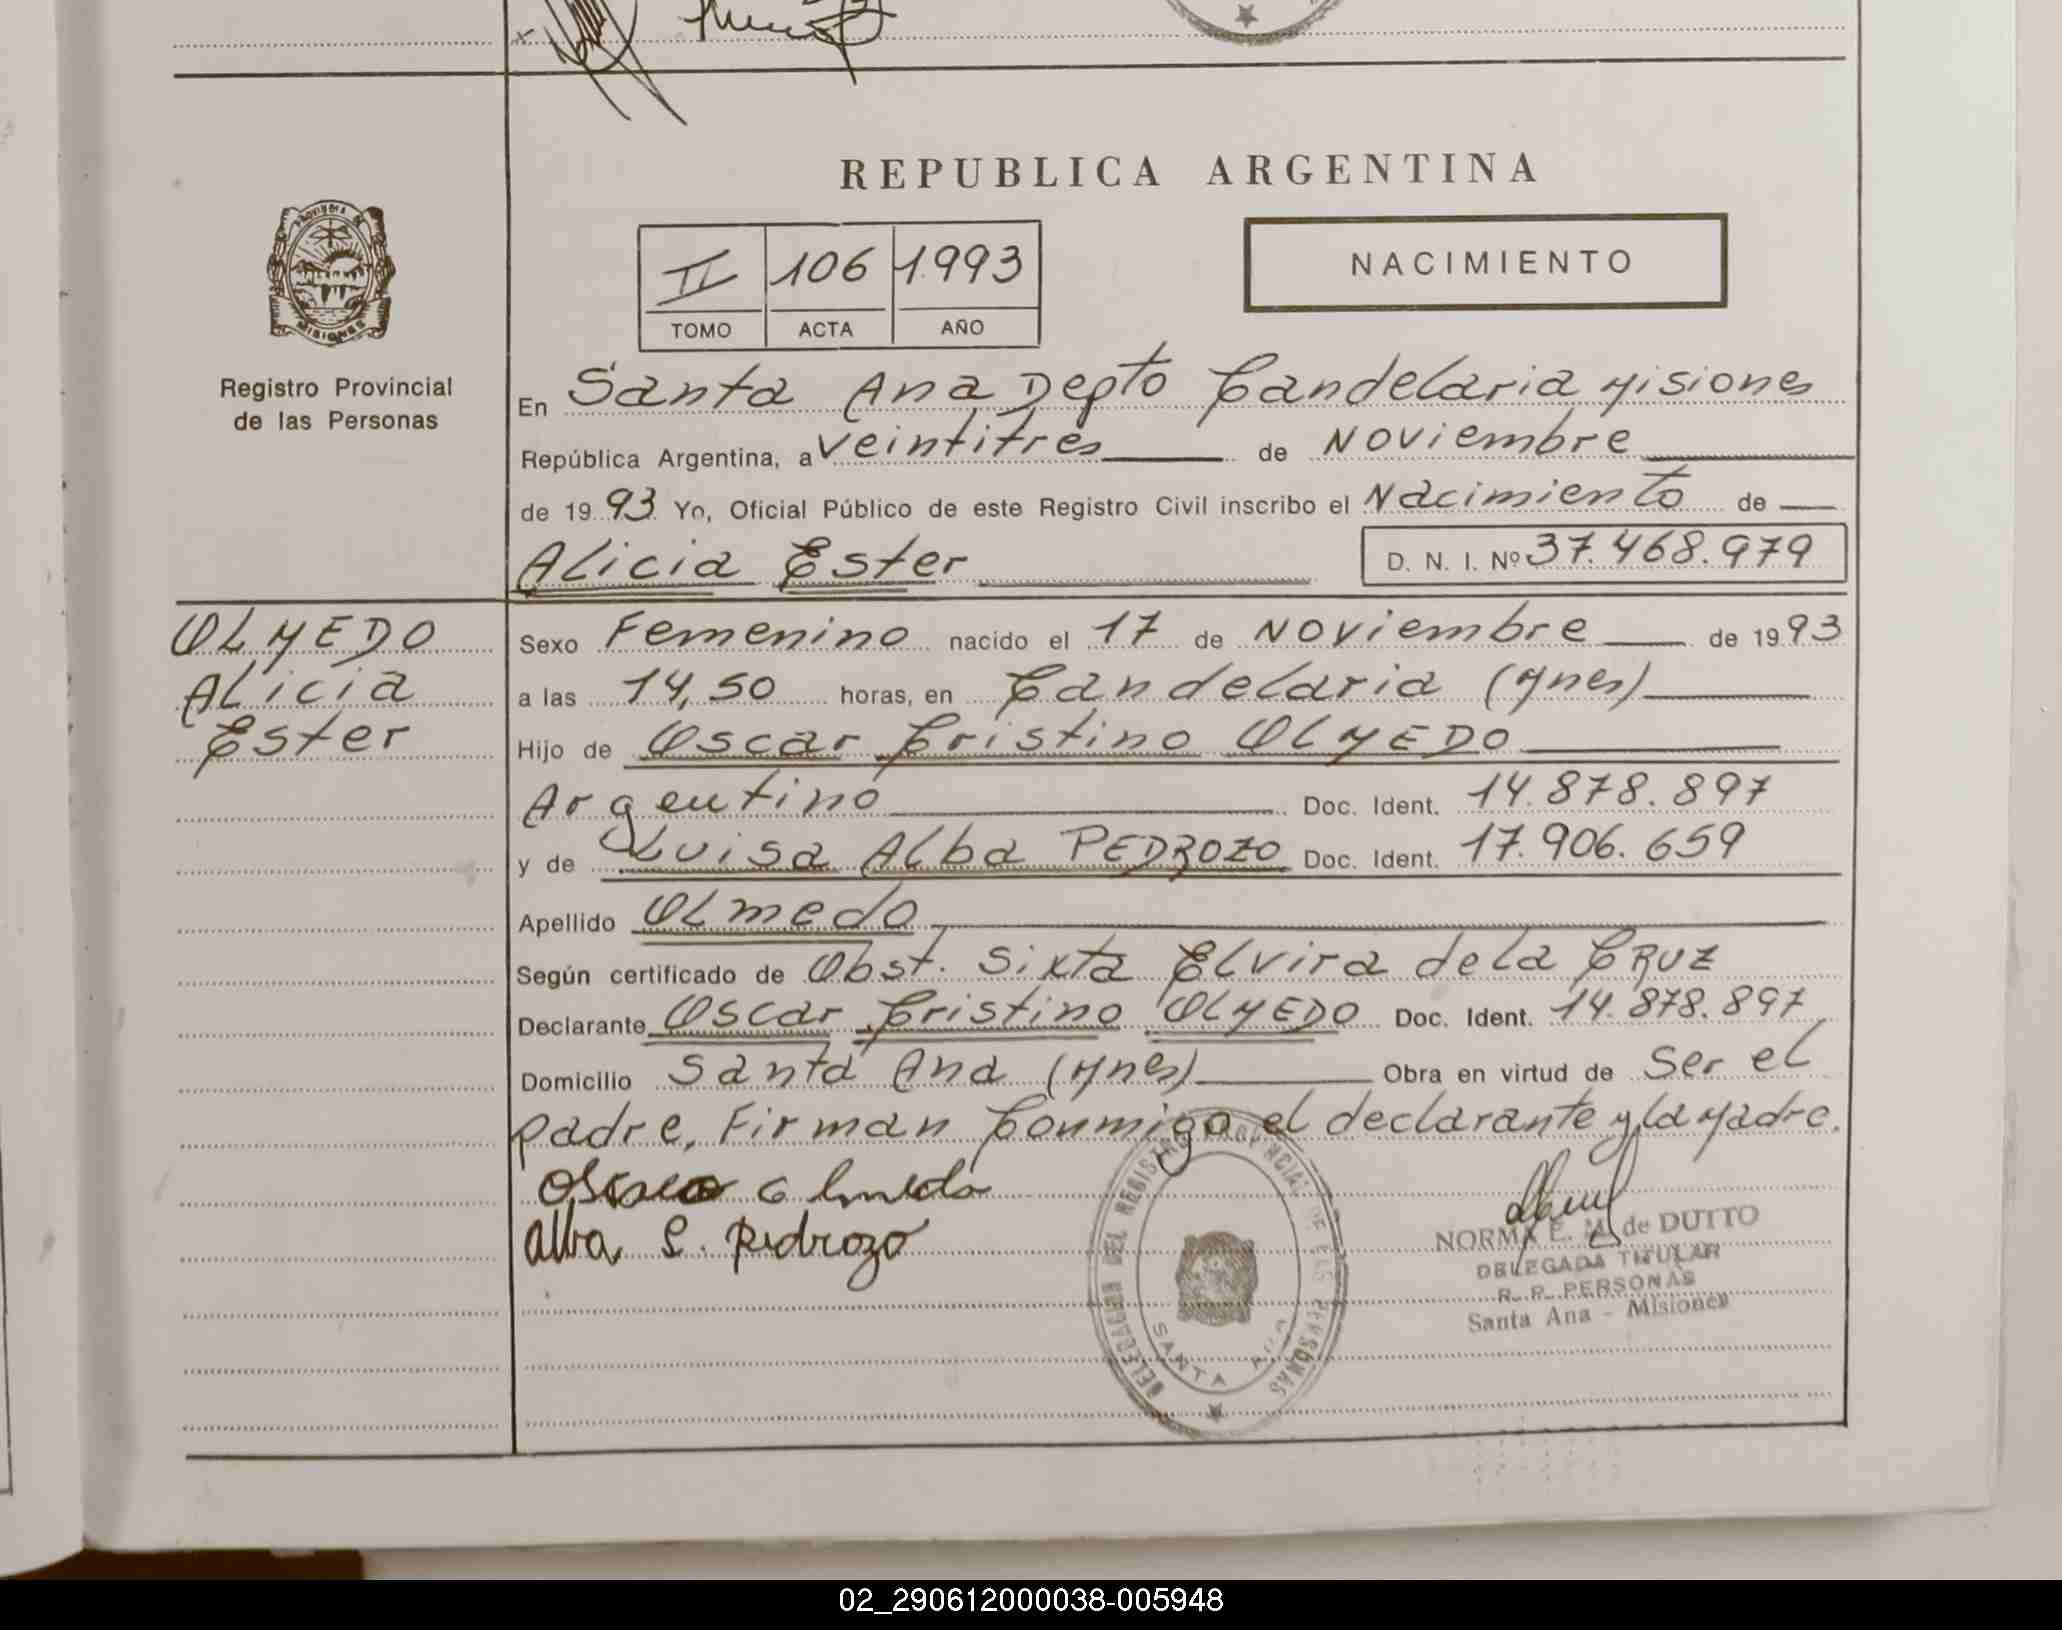 REPUBLICA ARGENTINA
II 106 1.993
TOMO ACTA AÑO
NACIMIENTO
PROVINCIA DE
MISIONES
Registro Provincial
de las Personas
En Santa Ana Depto Candelaria Misiones
República Argentina, a veintitres de Noviembre
de 19 93 Yo, Oficial Público de este Registro Civil inscribo el Nacimiento de
Alicia Ester D. N. I. Nº 37.468.979
OLMEDO
Alicia
Ester
Sexo Femenino nacido el 17 de Noviembre de 19 93
a las 14,50 horas, en Candelaria (Mnes)
Hijo de Oscar Cristino OLMEDO
Argentino Doc. Ident. 14.878.897
y de Luisa Alba PEDROZO Doc. Ident. 17.906.659
Apellido Olmedo
Según certificado de Obst. Sixta Elvira de la CRUZ
Declarante Oscar Cristino OLMEDO Doc. Ident. 14.878.897
Domicilio Santa Ana (Mnes) Obra en virtud de Ser el
padre, Firman Conmigo el declarante y la Madre.
Oscar C Olmedo
Alba L. Pedrozo
DELEGACION DEL REGISTRO PROVINCIAL DE LAS PERSONAS
SANTA ANA
NORMA E. M. de DUTTO
DELEGADA TITULAR
R. P. PERSONAS
Santa Ana - Misiones
02_290612000038-005948